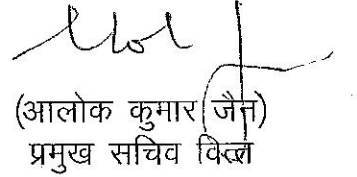 (आलोक कुमार जैन)
प्रमुख सचिव वित्त